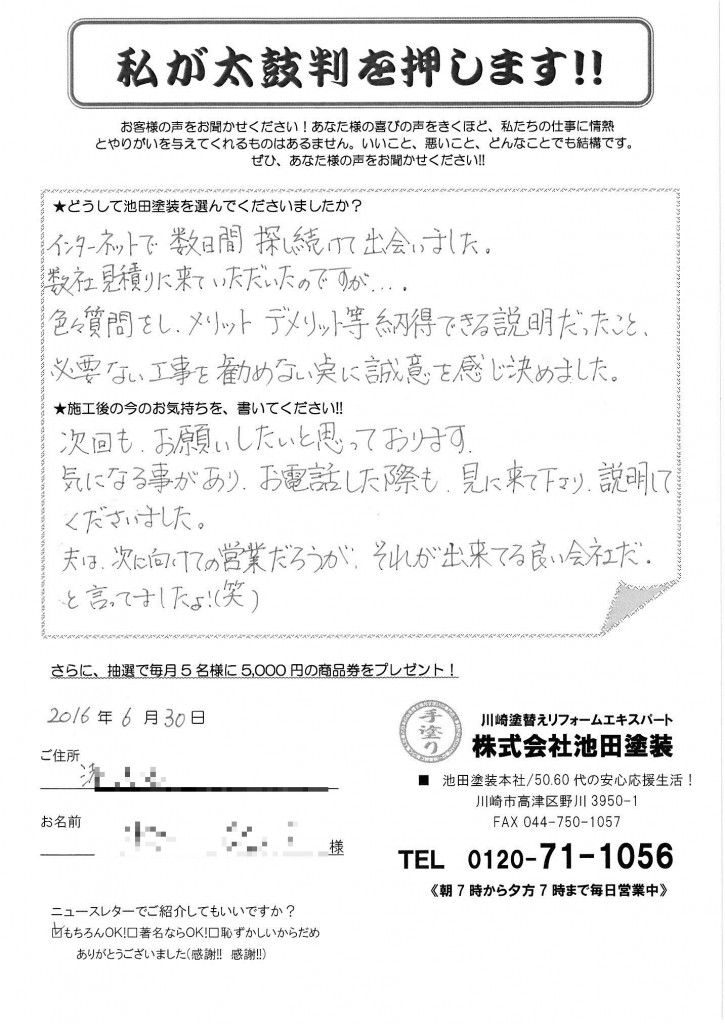 私が太鼓判を押します!!
お客様の声をお聞かせください！あなた様の喜びの声をきくほど、私たちの仕事に情熱
とやりがいを与えてくれるものはあるません。いいこと、悪いこと、どんなことでも結構です。
ぜひ、あなた様の声をお聞かせください!!
★どうして池田塗装を選んでくださいましたか？
インターネットで 数日間 探し続けて出会いました。
数社見積りに来ていただいたのですが…．
色々質問をし、メリット デメリット等 納得できる説明だったこと、
必要ない工事を勧めない点に誠意を感じ決めました。
★施工後の今のお気持ちを、書いてください!!
次回も、お願いしたいと思っております。
気になる事があり、お電話した際も、見に来て下さり、説明して
くださいました。
夫は、次に向けての営業だろうが、それが出来てる良い会社だ。
と言ってましたよ!(笑)
さらに、抽選で毎月5名様に5,000円の商品券をプレゼント！
2016年 6月 30日
ご住所
お名前
様
ニュースレターでご紹介してもいいですか？
☑もちろんOK!□著名ならOK!□恥ずかしいからだめ
ありがとうございました(感謝!! 感謝!!)
手塗り
川崎塗替えリフォームエキスパート
株式会社池田塗装
■ 池田塗装本社/50.60代の安心応援生活！
川崎市高津区野川3950-1
FAX 044-750-1057
TEL 0120-71-1056
《朝7時から夕方7時まで毎日営業中》